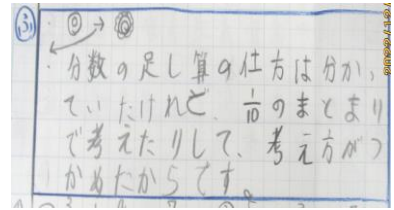 ふ ◎→
分数の足し算の仕方は分かっ
ていたけれど、1/10のまとまり
で考えたりして、考え方がつ
かめたからです。